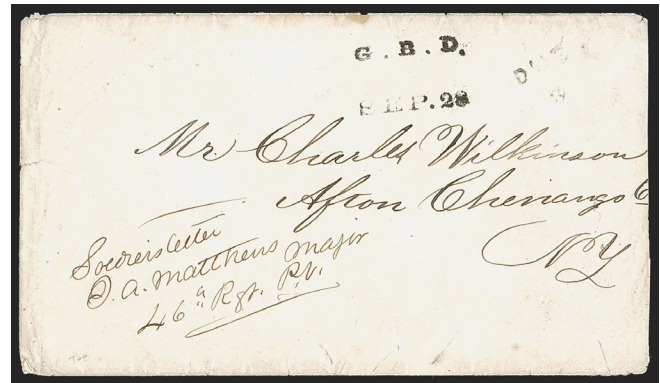 G. B. D.
DUE
SEP. 28
Mr. Charles Wilkinson
Afton Chenango Co
NY
Soldiers letter
D. A. Matthews Major
46" Rgt. P.V.